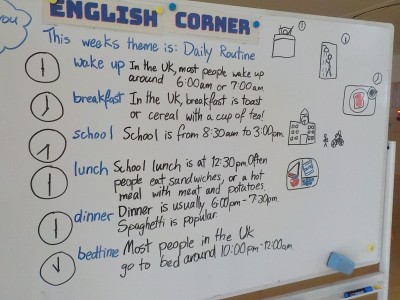 you
ENGLISH CORNER
This weeks theme is: Daily Routine
wake up In the UK, most people wake up
around 6:00am or 7:00am
breakfast In the UK, breakfast is toast
or cereal with a cup of tea!
school School is from 8:30am to 3:00pm
lunch School lunch is at 12:30pm. Often
people eat sandwiches, or a hot
meal with meat and potatoes.
dinner Dinner is usually 6:00pm-7:30pm.
Spaghetti is popular.
bedtime Most people in the UK
go to bed around 10:00pm-12:00am